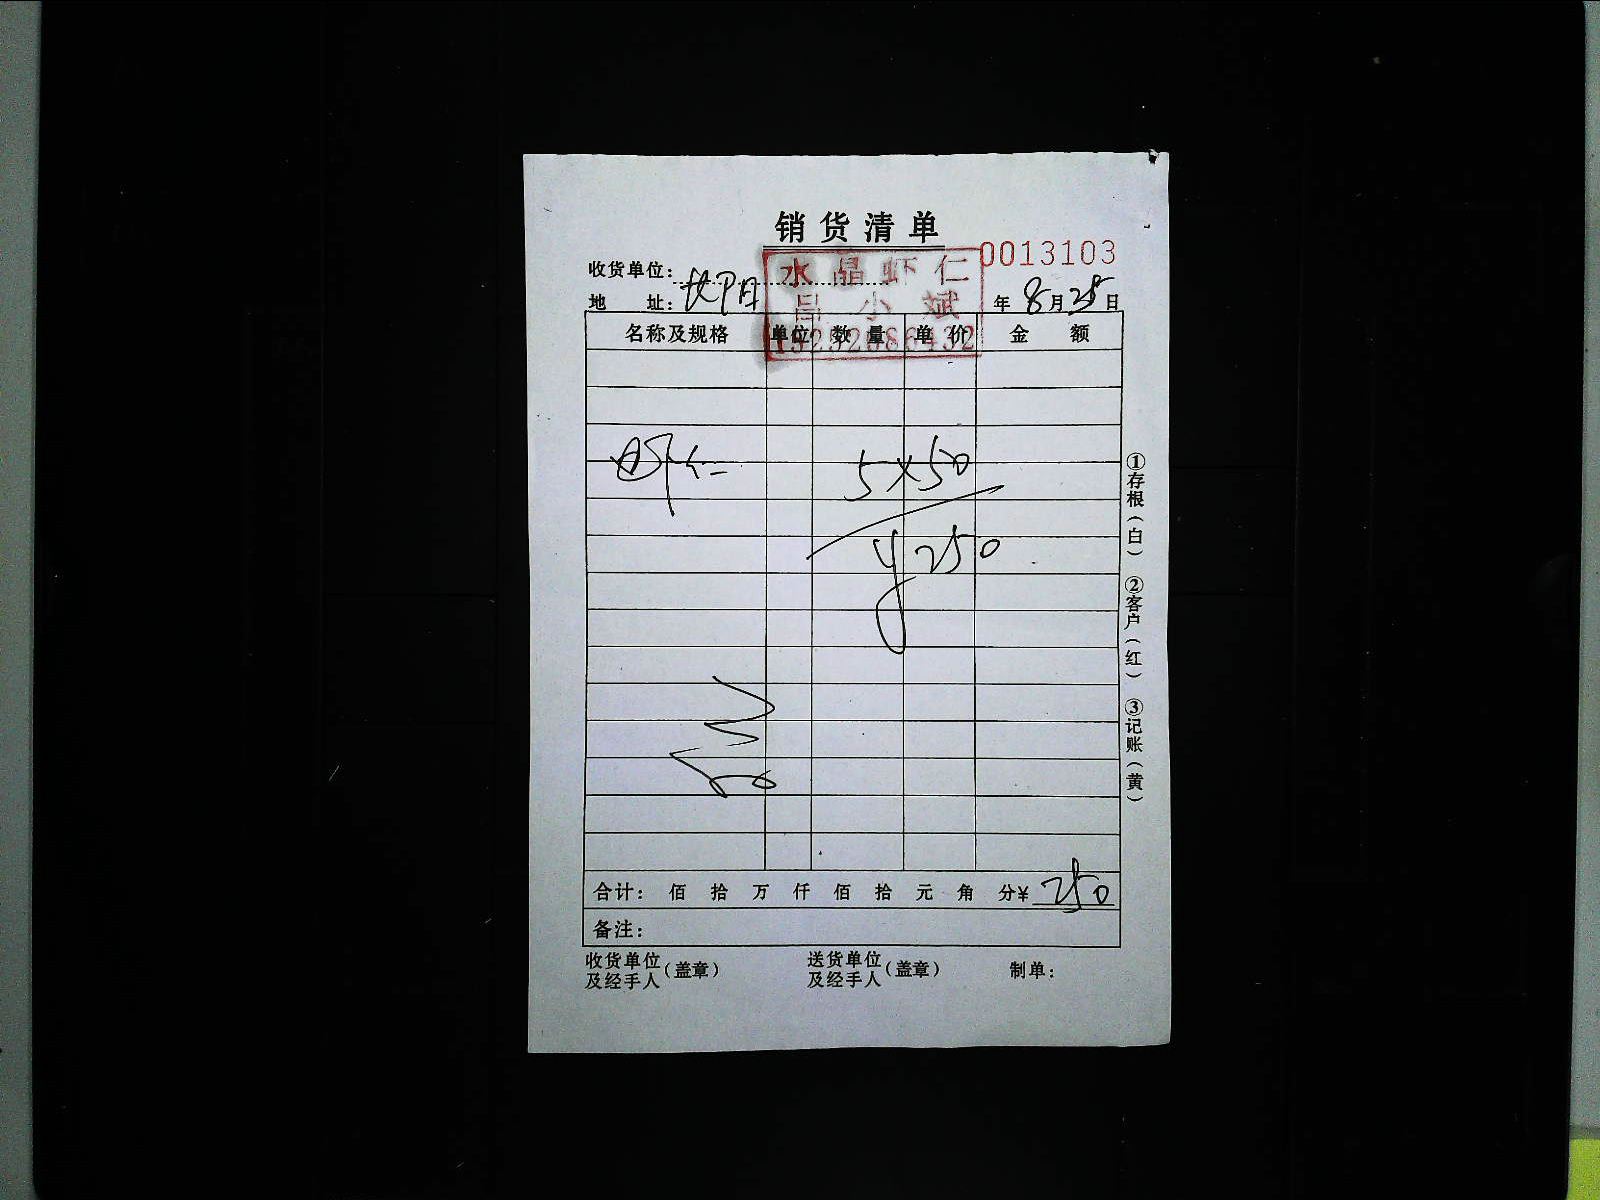 销货清单
0013103
收货单位:
水晶虾仁
地 址: 年 8月25日
吕小斌
名称及规格 单位 数量 单价 金额
虾仁 5×50
¥250
合计: 佰 拾 万 仟 佰 拾 元 角 分¥ 250
备注:
收货单位及经手人(盖章) 送货单位及经手人(盖章) 制单:
①存根(白) ②客户(红) ③记账(黄)